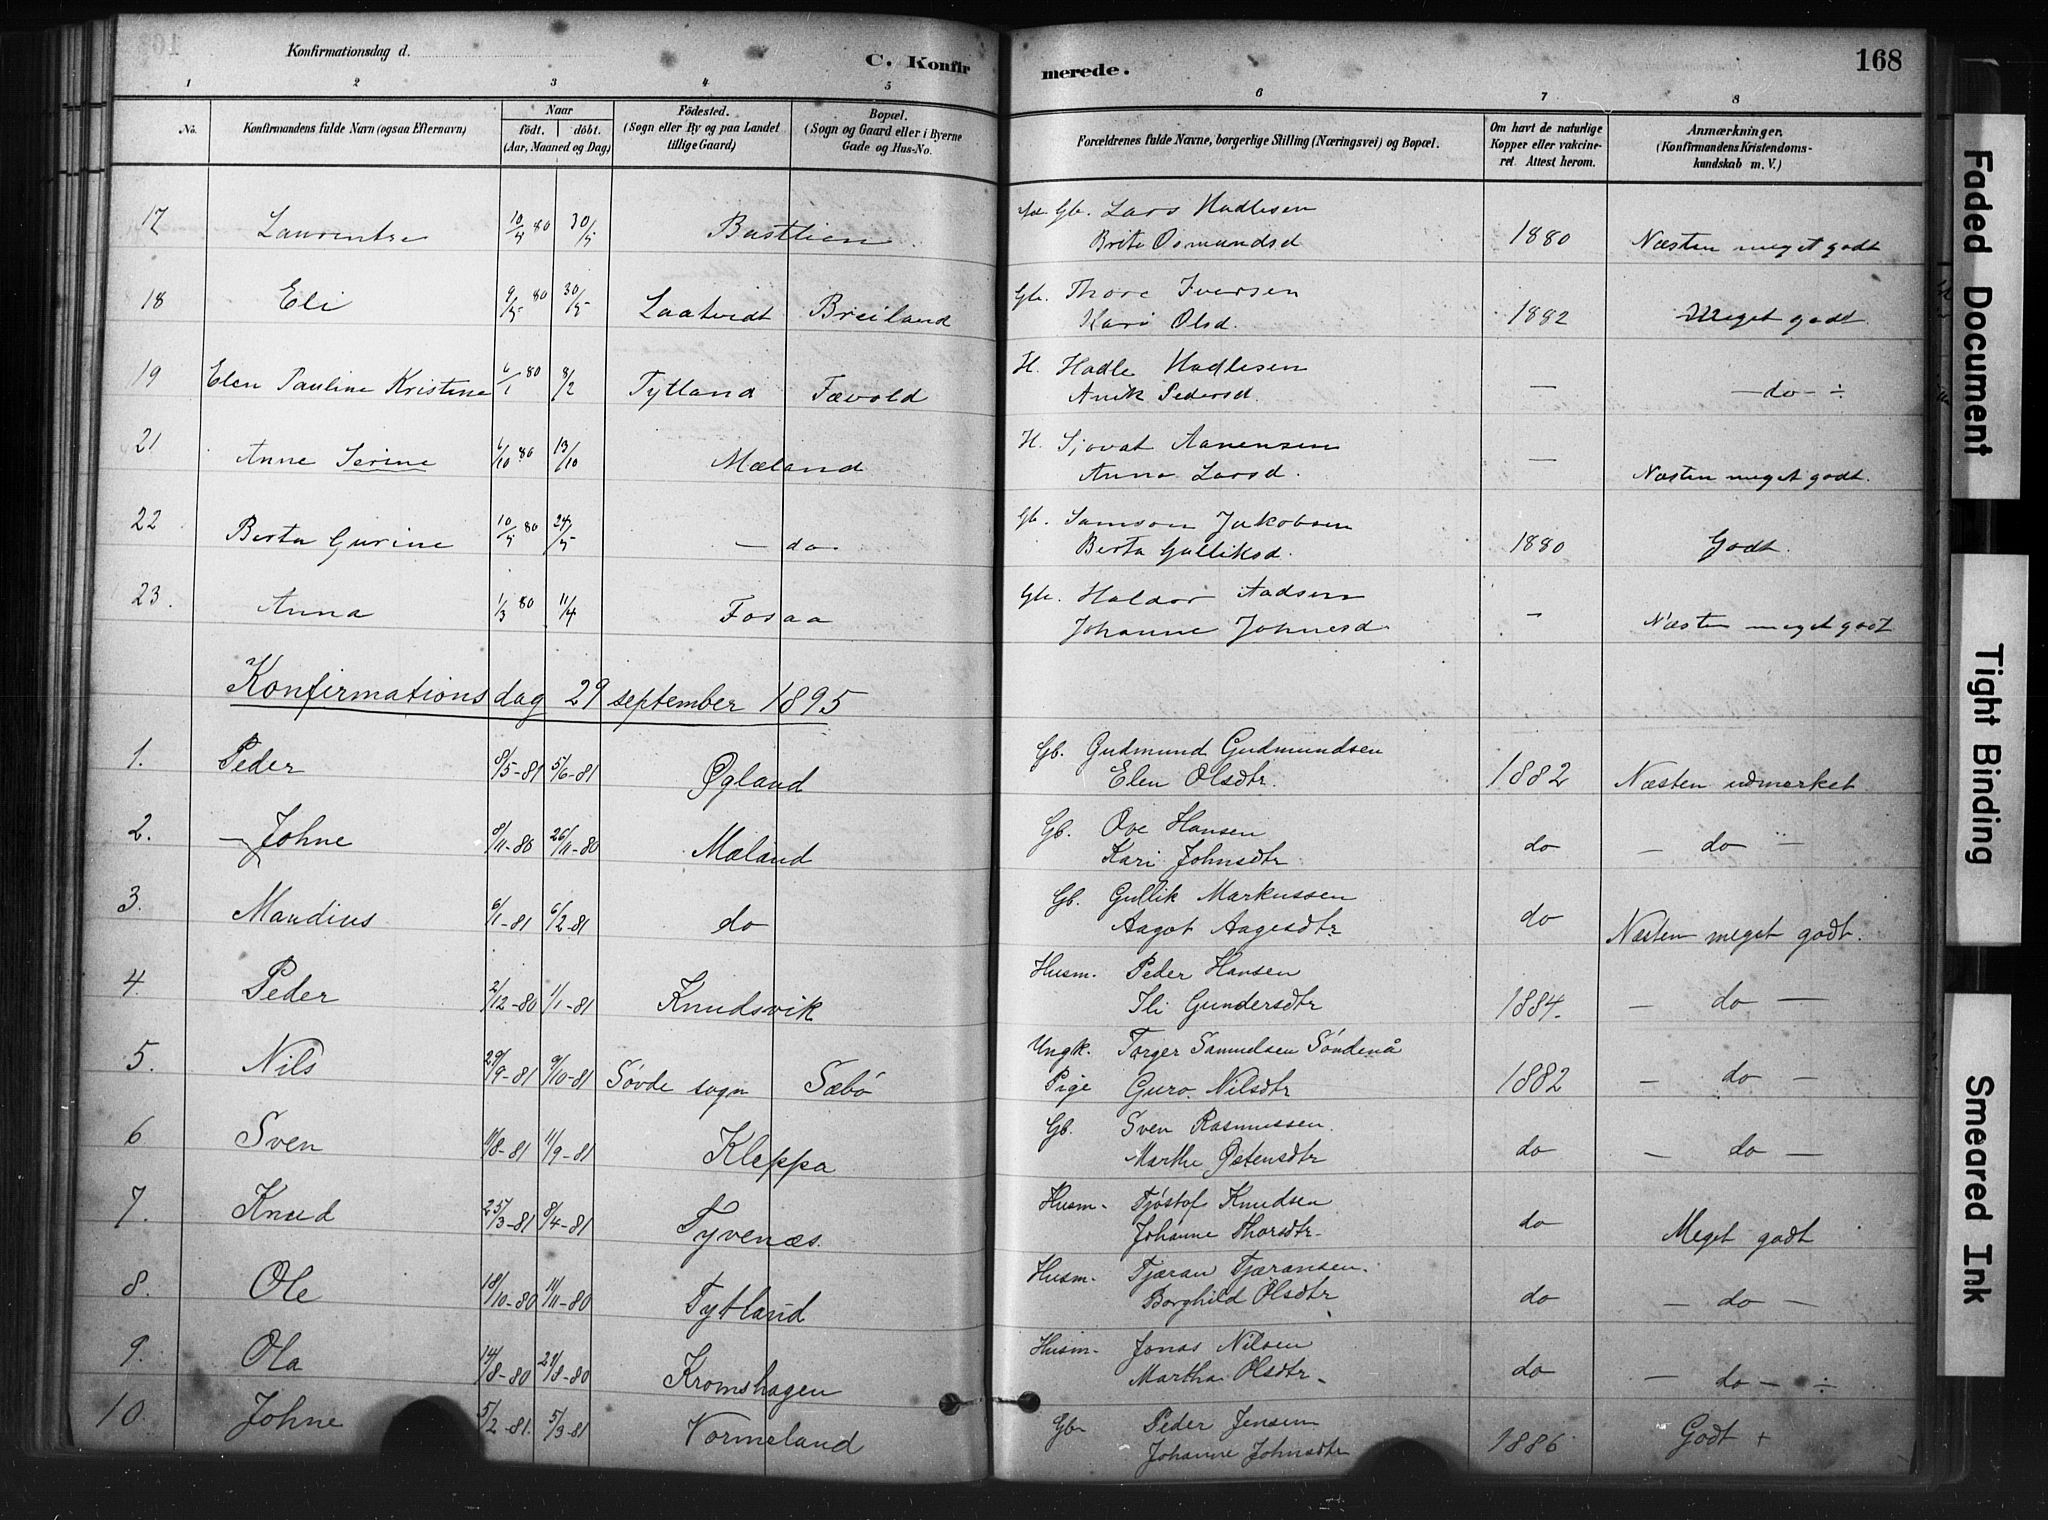 Konfirmationsdag d.
C. Konfirmerede.
168
1 2 3 4 5 6 7 8
No.
Konfirmandens fulde Navn (ogsaa Efternavn)
Naar
födt. döbt.
(Aar, Maaned og Dag)
Födested.
(Sogn eller By og paa Landet
tillige Gaard)
Bopæl.
(Sogn og Gaard eller i Byerne
Gade og Hus-No.
Forældrenes fulde Navne, borgerlige Stilling (Næringsvei) og Bopæl.
Om havt de naturlige
Kopper eller vakcine-
ret. Attest herom.
Anmærkninger.
(Konfirmandens Kristendoms-
kundskab m. V.)
17 Laurentse 10/5 80 30/5 Bastlien Gb. Lars Hadlesen
Brita Osmundsd 1880 Næsten meget godt
18 Eli 9/5 80 30/5 Laatveidt Breiland Gb. Thore Iversen
Kari Olsd. 1882 Meget godt.
19 Elen Pauline Kristine 6/1 80 8/2 Tytland Fævold H. Hadle Hadlesen
Anik Pedersd. — — do — ÷
21 Anne Serine 6/10 80 13/10 Mæland H. Sjovat Aanensen
Anna Larsd. — Næsten meget godt.
22 Berta Gurine 10/5 80 24/5 — do — Gb. Samson Jakobsen
Berta Gulliksd. 1880 Godt.
23. Anna 1/3 80 11/4 Fosaa Gb. Haldor Aadsen
Johanne Johnesd. — Næsten meget godt
Konfirmationsdag 29 september 1895
1. Peder 8/5-81 5/6-81 Øgland Gb. Gudmund Gudmundsen
Elen Olsdtr. 1882 Næsten udmerket
2. Johne 8/11-80 26/11-80 Mæland Gb. Ove Hansen
Kari Johnsdtr do — do —
3. Mandius 6/1-81 6/2-81 do Gb. Gullik Markussen
Aagot Aagesdtr do Næsten meget godt.
4. Peder 2/12-80 1/1-81 Knudsvik Husm. Peder Hansen
Ili Gundersdtr 1884. — do —
5. Nils 29/9-81 9/10-81 Søvde sogn Sæbø Ungk. Torger Samuelsen Søndenå
Pige Guro Nilsdtr 1882 — do —
6 Sven 11/8-81 11/9-81 Kleppa Gb. Sven Rasmussen.
Marthe Østensdtr do — do —
7. Knud 25/3-81 8/4-81 Tyvenæs. Husm. Tjøstof Knudsen
Johanne Thorsdtr. do Meget godt
8. Ole 18/10-80 11/11-80 Tytland Husm. Tjæran Tjæransen.
Borghild Olsdtr do — do —
9. Ola 14/8-80 29/8-80 Kromshagen Husm. Jonas Nilsen
Martha Olsdtr. do — do — ÷
10. Johne 5/2-81. 5/3-81 Vormeland Gb. Peder Jensen
Johanne Johnsdtr 1886 Godt +
Faded Document
Tight Binding
Smeared Ink